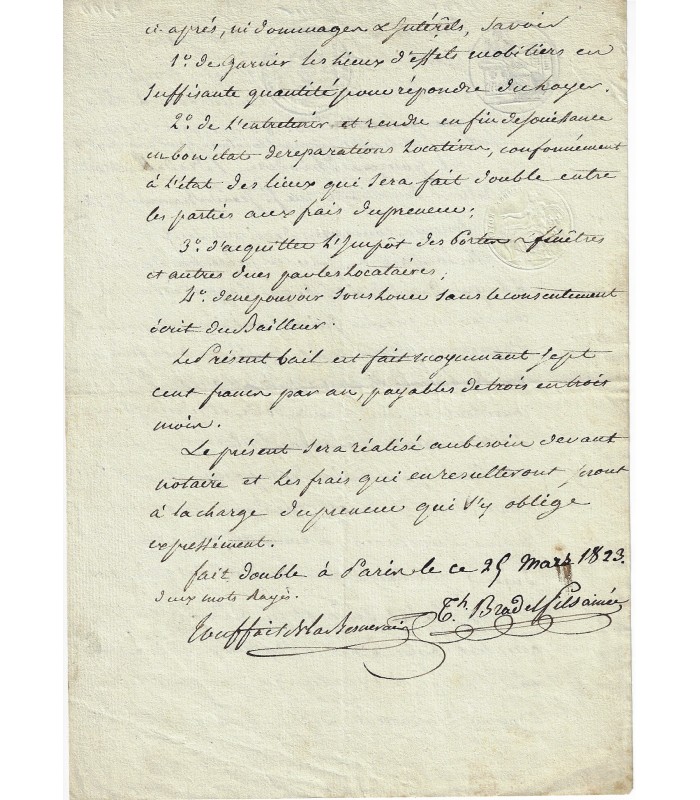 ci-après, ni dommages & Intérêts, Savoir
1°. de Garnir les lieux d'effets mobiliers en
Suffisante quantité pour répondre du Loyer.
2°. de l'entretenir et rendre en fin de jouissance
en bon état de réparations locatives, conformément
à l'état des lieux qui Sera fait double entre
les parties aux frais du preneur;
3°. d'acquitter l'Impôt des Portes & fenêtres
et autres dues par les Locataires;
4°. de ne pouvoir Sous louer Sans le consentement
écrit du Bailleur.
Le Présent bail est fait moyennant Sept
cent francs par an, payables de trois en trois
mois.
Le présent Sera réalisé au besoin devant
notaire et les frais qui en resulteront Seront
à la charge du preneur qui S'y oblige
expressément.
fait double à Paris le ce 25 Mars 1823.
deux mots Rayés.
Th. Bradel fils ainée